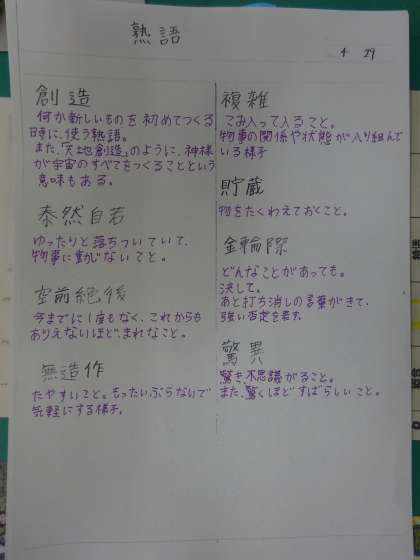 熟語
4 29
創造
何か新しいものを初めてつくる
時に、使う熟語。
また、「天地創造」のように、神様
が宇宙のすべてをつくることという
意味もある。
泰然自若
ゆったりと落ちついていて、
物事に動じないてと。
空前絶後
今までに1度もなく、これからも
ありえないほど、まれなこと。
無造作
たやすいこと。もったいぶらないで
気軽にする様子。
複雑
こみ入って入ること。
物事の関係や状態が入り組んで
いる様子
貯蔵
物をたくわえておくこと。
金輪際
どんなことがあっても。
決して。
あと打ち消しの言葉がきて、
強い否定を表す。
驚異
驚き、不思議がること。
また、驚くほどすばらしいこと。